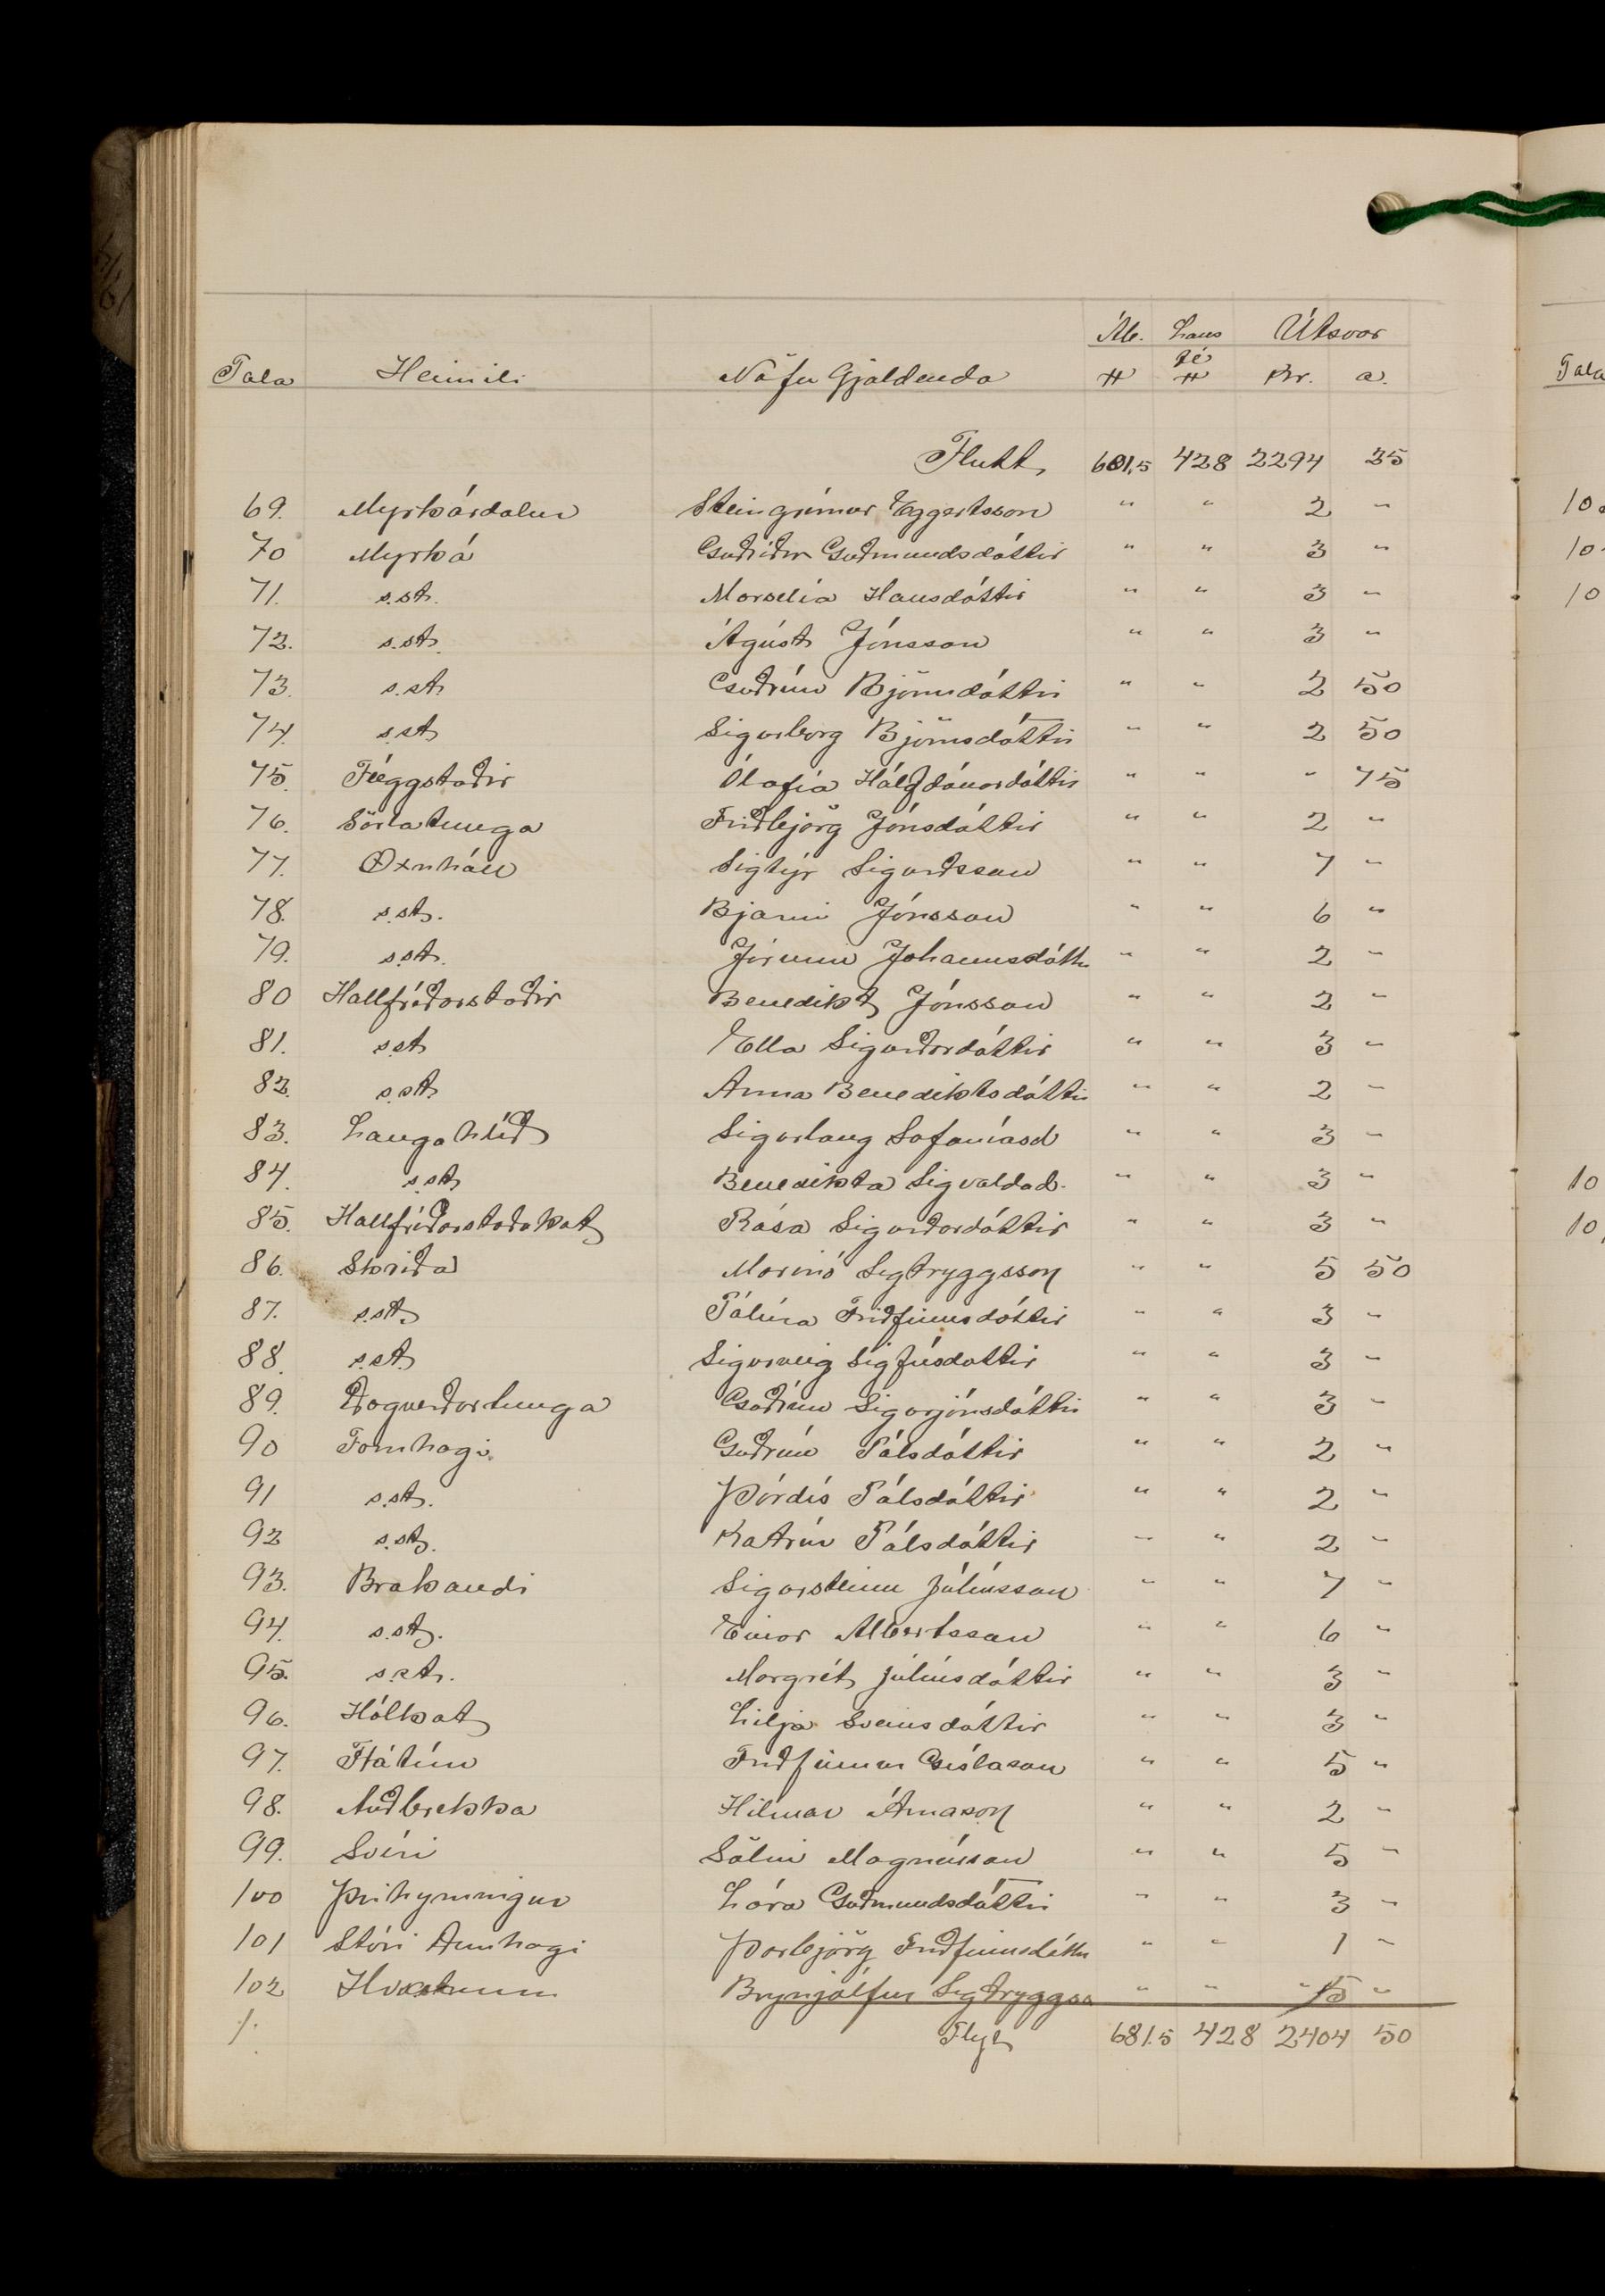 Áb. Laus Útsvar
Tala Heimili Nöfn Gjaldenda # fé # Kr. a.
Flutt 681,5 428 2294 25
69. Myrkárdalur Steingrímur Eggertsson " " 2 "
70 Myrká Guðríður Guðmundsdóttir " " 3 "
71. s.st. Marselía Hansdóttir " " 3 "
72. s.st. Ágúst Jónsson " " 3 "
73. s.st. Guðrún Björnsdóttir " " 2 50
74. s.st Sigurborg Björnsdóttir " " 2 50
75. Féeggstaðir Ólafía Hálfdánardóttir " " " 75
76. Sörlatunga Friðbjörg Jónsdóttir " " 2 "
77. Öxnhóll Sigtýr Sigurðsson " " 7 "
78. s.st. Bjarni Jónsson " " 6 "
79. s.st. Jórunn Jóhannsdóttir " " 2 "
80 Hallfríðarstaðir Benedikt Jónsson " " 2 "
81. s.st Ella Sigurðardóttir " " 3 "
82. s.st. Anna Benediktsdóttir " " 2 "
83. Langahlíð Sigurlaug Sofaníasd " " 3 "
84. s.st Benedikta Sigvaldad. " " 3 "
85. Hallfríðarstaðakot Rósa Sigurðardóttir " " 3 "
86. Skriða Marinó Sigtryggsson " " 5 50
87. s.st. Pálína Friðfinnsdóttir " " 3 "
88. s.st. Sigurveig Sigfúsdóttir " " 3 "
89. Dagverðartunga Guðrún Sigurjónsdóttir " " 3 "
90 Fornhagi Guðrún Pálsdóttir " " 2 "
91 s.st. Þórdís Pálsdóttir " " 2 "
92 s.st. Katrín Pálsdóttir " " 2 "
93. Brakandi Sigursteinn Júlíusson " " 7 "
94. s.st. Einar Albertsson " " 6 "
95. s.st. Margrét Júlíusdóttir " " 3 "
96. Hólkot Lilja Sveinsdóttir " " 3 "
97. Hátún Friðfinnur Gíslason " " 5 "
98. Auðbrekka Hilmar Árnason " " 2 "
99. Svíri Sölvi Magnússon " " 5 "
100 Þríhyrningur Lára Guðmundsdóttir " " 3 "
101 Stóri Dunhagi Þorbjörg Friðfinnsdóttir " " 1 "
102 Brynjólfur Sigtryggss " " 15 "
/. Flyt 681.5 428 2404 50
Tala
10
10
10
10
10